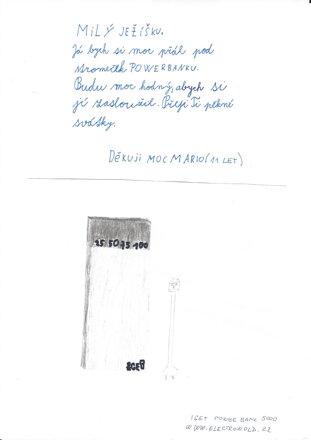 MILÝ JEŽÍŠKU.
Já bych si moc přál pod
stromeček POWERBANKU.
Budu moc hodný, abych si
ji zasloužil. Přeji Ti pěkné
svátky.
DĚKUJI MOC MARIO (11 LET)
25 50 75 100
IGET POWER BANK 5000
WWW.ELECTROWOLD.CZ